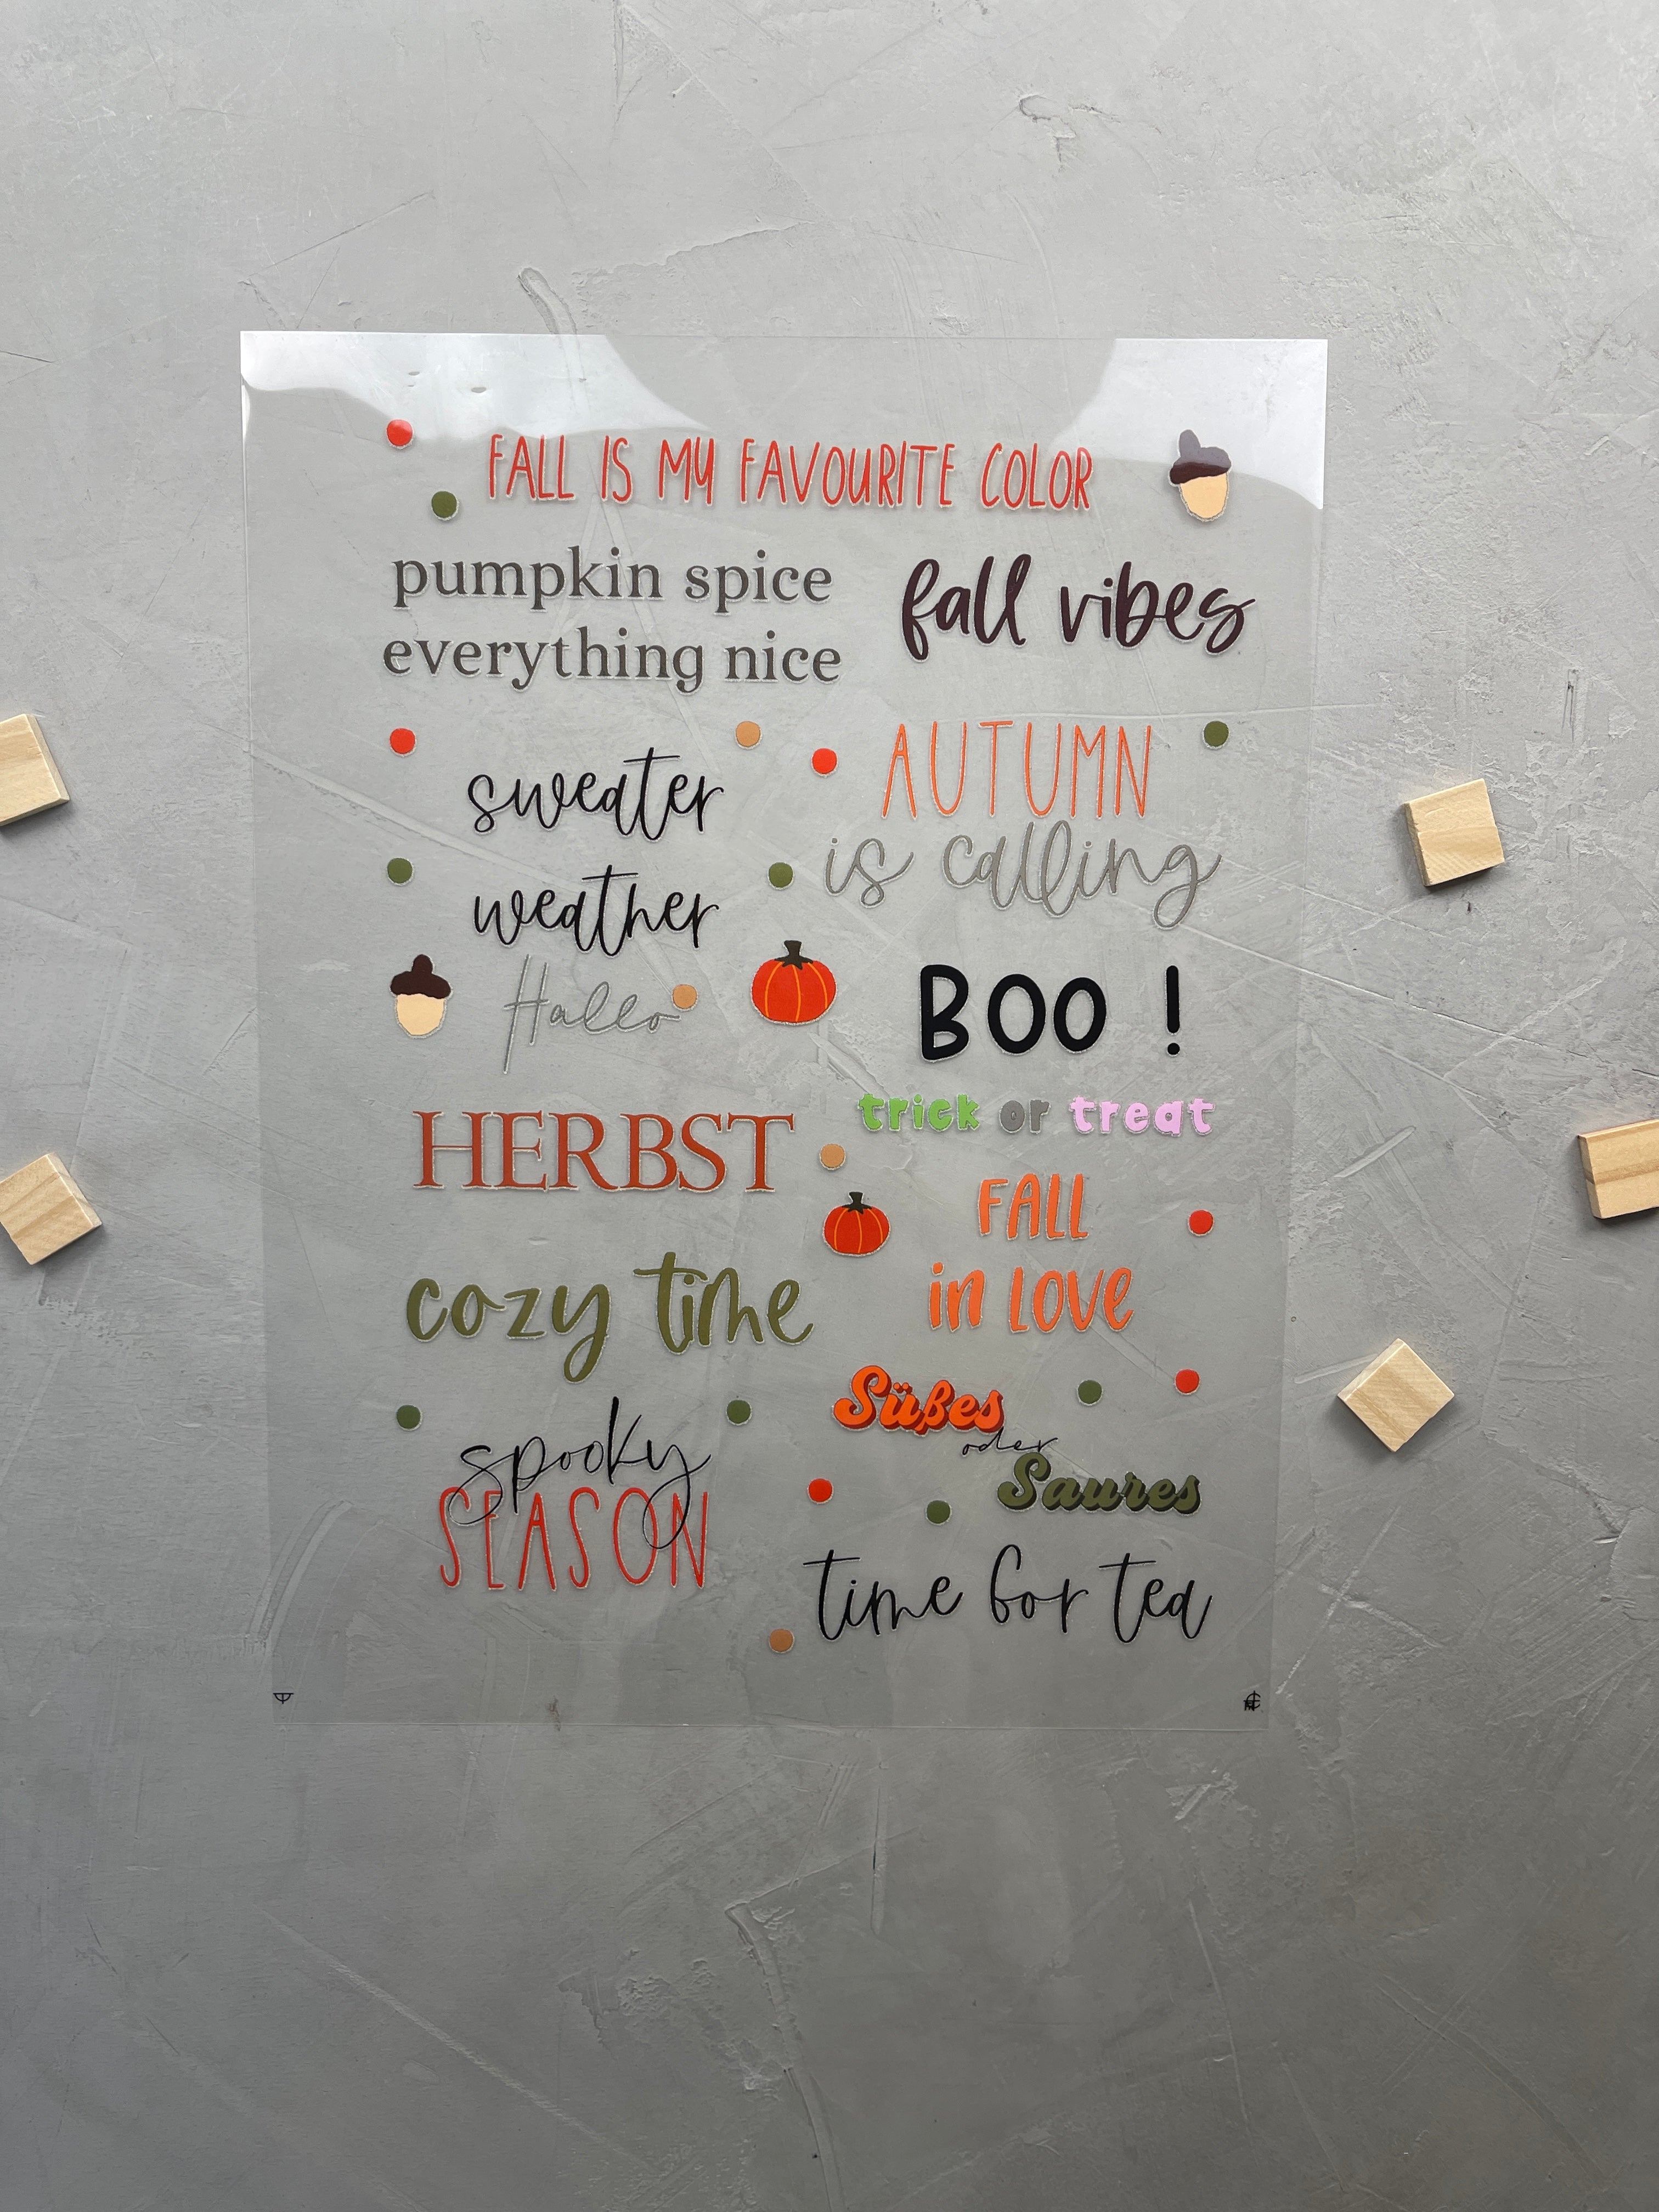 FALL IS MY FAVOURITE COLOR
pumpkin spice
everything nice
fall vibes
sweater
weather
AUTUMN
is calling
Hallo
HERBST
BOO !
trick or treat
cozy time
FALL
in LOVE
spooky
SEASON
Süßes
oder
Saures
time for tea